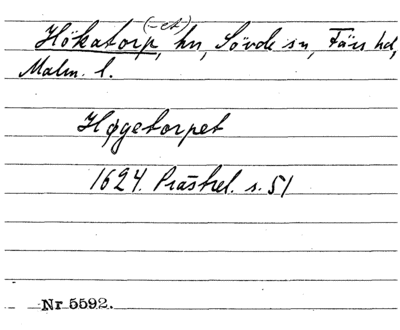 Hökatorp (-et), hn, Sövde sn, Färs hd,
Malm. l.
Høgetorpet
1624. Prästrel. s. 51
Nr 5592.